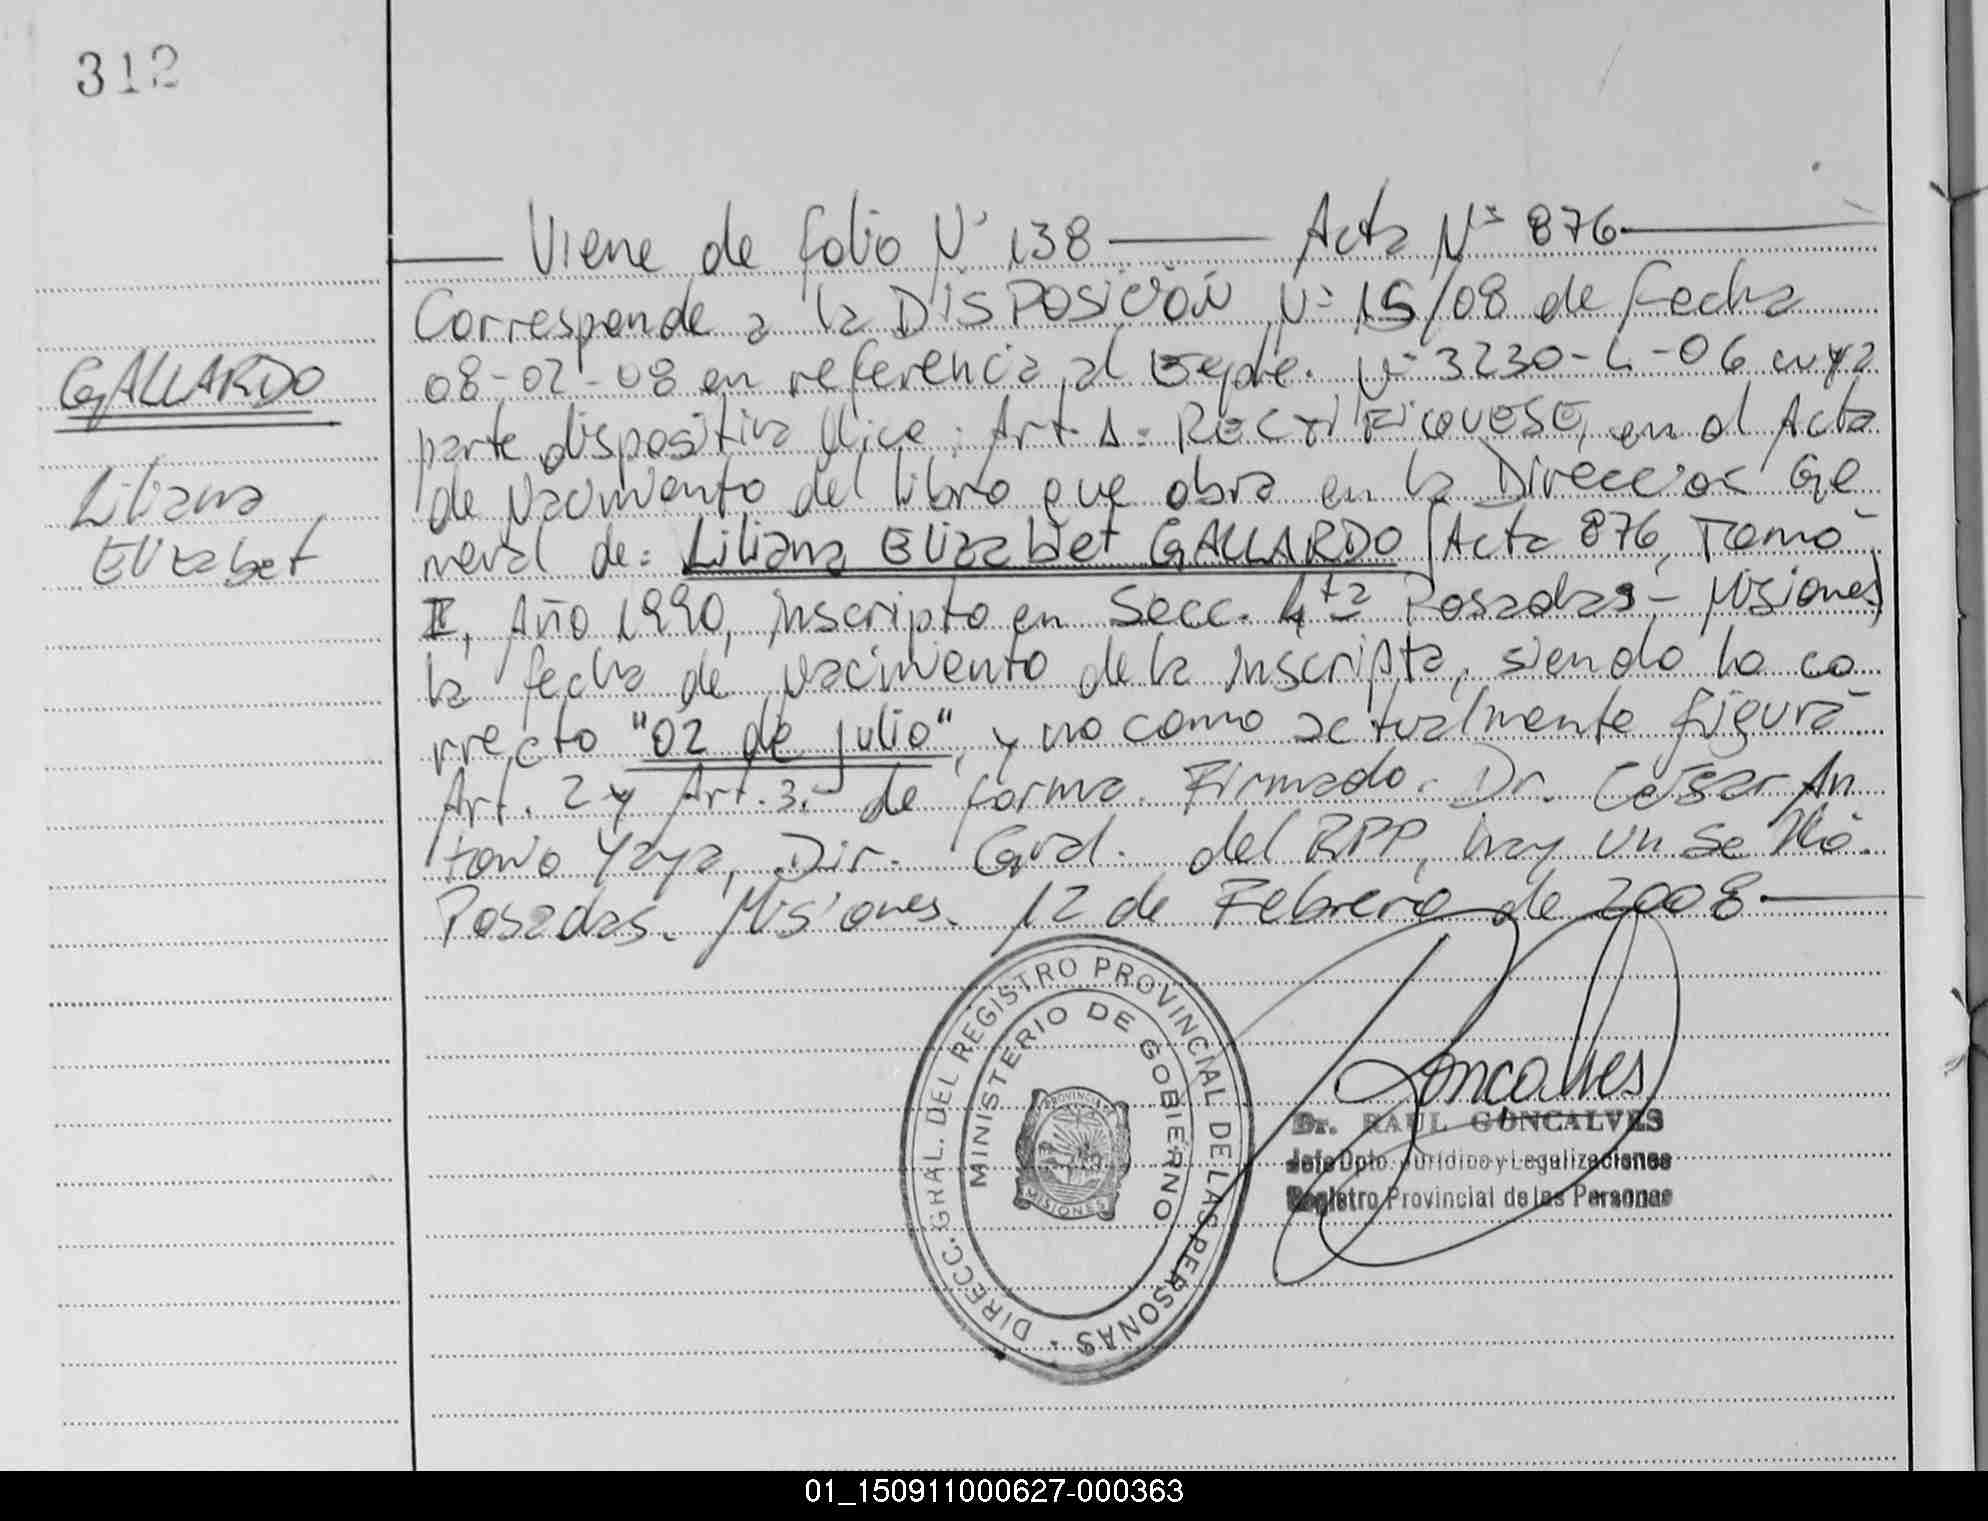 312
GALLARDO
Liliana
Elizabet
Viene de folio Nº 138 — Acta Nº 876
Corresponde a la DISPOSICIÓN Nº 15/08 de fecha
08-02-08 en referencia al Expte. Nº 3230-L-06 cuya
parte dispositiva dice: Art. 1: RECTIFIQUESE, en el Acta
de nacimiento del libro que obra en la Direccion Ge
neral de: Liliana Elizabet GALLARDO (Acta 876, Tomo
II, Año 1990, inscripto en Secc. 4ta Posadas - Misiones)
la fecha de nacimiento de la inscripta, siendo lo co
rrecto "02 de julio", y no como actualmente figura
Art. 2 y Art. 3.- de forma. Firmado. Dr. César An
tonio Yaya, Dir. Gral. del RPP, hay un sello.
Posadas. Misiones. 12 de Febrero de 2008
DIRECC. GRAL. DEL REGISTRO PROVINCIAL DE LAS PERSONAS
MINISTERIO DE GOBIERNO
PROVINCIA
MISIONES
Goncalves
Dr. RAUL GONCALVES
Jefe Dpto. Jurídico y Legalizaciones
Registro Provincial de las Personas
01_150911000627-000363